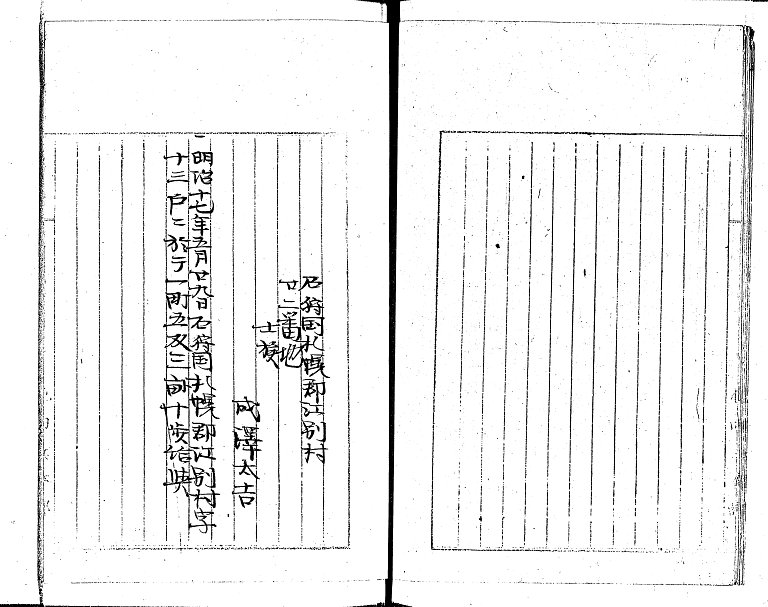 石狩国札幌郡江別村
廿二番地
士族
成澤太吉
一明治十七年五月廿九日石狩国札幌郡江別村字
十三戸ニ於テ一町五反三畝十歩給典